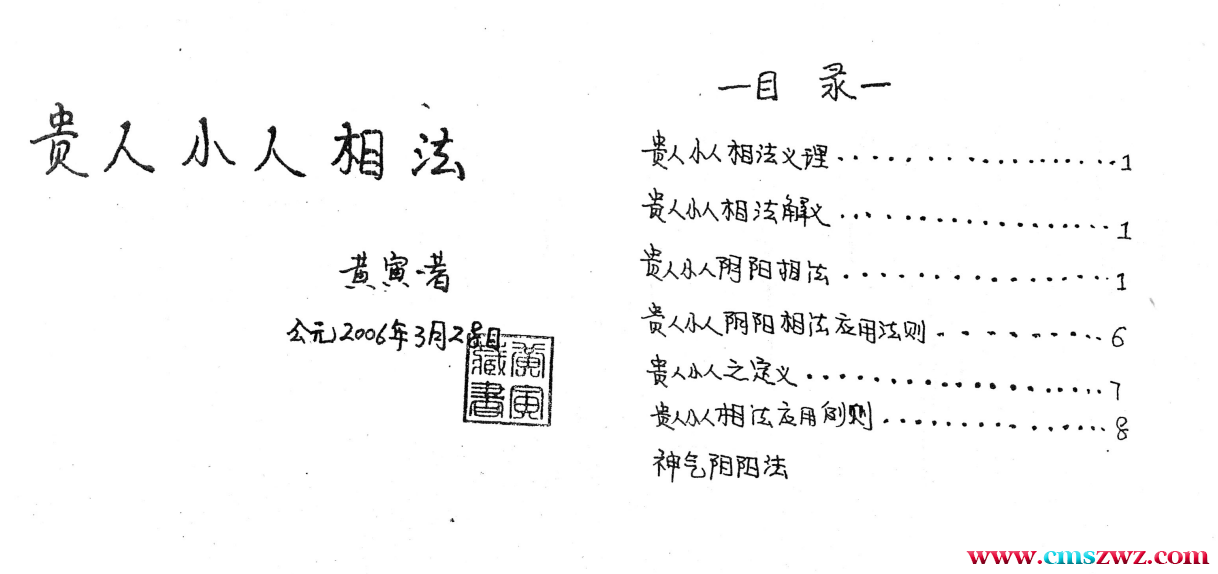 贵人小人相法
黄寅·著
公元2006年3月28日
黄寅
藏書
—目 录—
贵人小人相法义理..................1
贵人小人相法解义..................1
贵人小人阴阳相法..................1
贵人小人阴阳相法应用法则.........6
贵人小人之定义..................7
贵人小人相法应用例则...............8
神气阴阳法
www.cmszwz.com